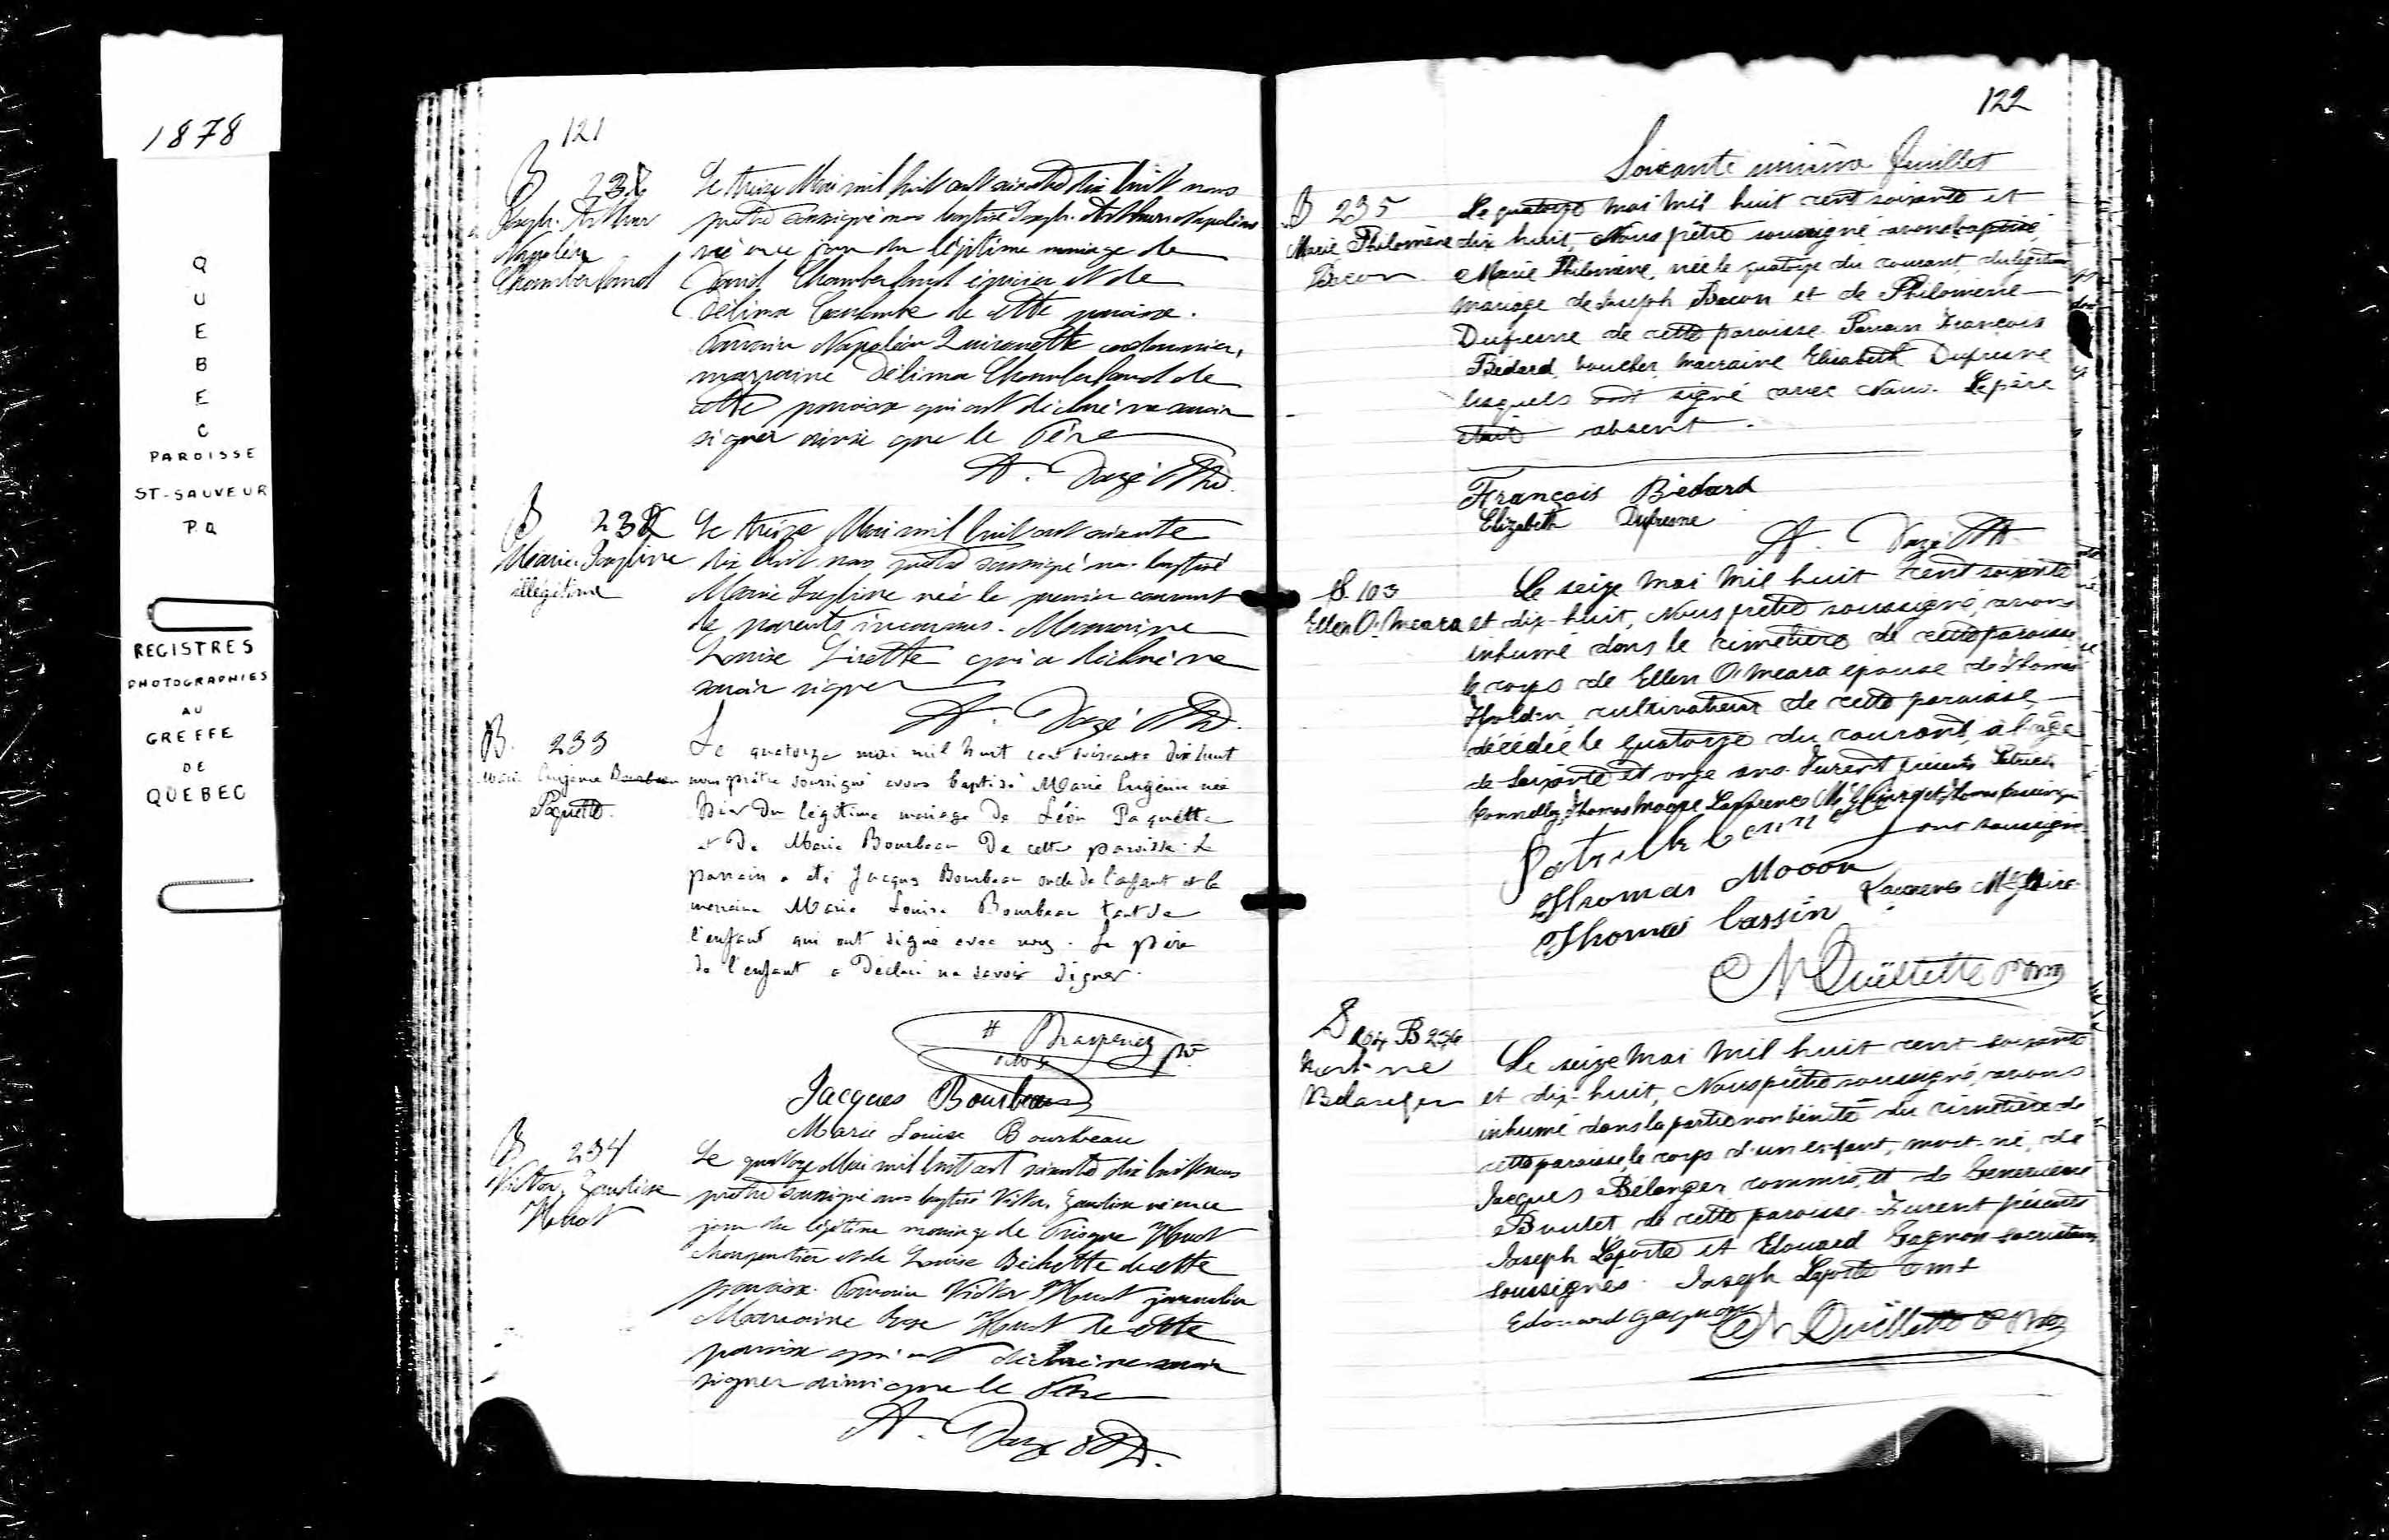 1878
QUEBEC
PAROISSE
ST-SAUVEUR
P Q
REGISTRES
PHOTOGRAPHIES
AU
GREFFE
DE
QUEBEC
121
B 231
Joseph. Arthur
Napoléon
Chamberland
Le treize Mai mil huit cent soixante dix huit nous
prêtre soussigné avons baptisé Joseph. Arthur Napoléon
né en ce jour du légitime mariage de
David Chamberland épicier et de
Délima de cette paroisse.
Parrain Napoléon cordonnier,
marraine Délima Chamberland de
cette paroisse qui ont déclaré ne savoir
signer ainsi que le Père
B 232
Marie. Josephine
illégitime
Le treize Mai mil huit cent soixante
dix huit nous prêtre soussigné avons baptisé
Marie Josephine née le premier courant
de parents inconnus. Marraine
Louise Lizette qui a déclaré ne
savoir signer
B. 233
Marie Eugénie Bourbeau
Paquette.
Le quatorze mai mil huit cent soixante dix huit
nous prêtre soussigné avons baptisé Marie Eugénie née
hier du légitime mariage de Léon Paquette
et de Marie Bourbeau de cette paroisse. Le
parrain a été Jacques Bourbeau oncle de l'enfant et la
marraine Marie Louise Bourbeau tante de
l'enfant qui ont signé avec nous. Le père
de l'enfant a déclaré ne savoir signer.
Jacques Bourbeau
Marie Louise Bourbeau
B 234
Victor,
Huot
Le quatorze Mai mil huit cent soixante dix huit nous
prêtre soussigné avons baptisé Victor, né en ce
jour du légitime mariage de Prisque Huot
charpentier et de Louise Béchette de cette
paroisse. Parrain Victor Huot journalier
Marraine Rose Huot de cette
paroisse qui ont déclaré ne savoir
signer ainsi que le Père
122
Soixante unième feuillet
B 235
Marie Philomène
Bacon
Le quatorze Mai Mil huit cent soixante et
dix huit, Nous prêtre soussigné avons baptisé
Marie Philomène, née le quatorze du courant, du légitime
mariage de Joseph Bacon et de Philomène
Dufresne de cette paroisse. Parrain François
Bédard, boucher, marraine Elisabeth Dufresne
lesquels ont signé avec Nous. Le père
était absent.
François Bédard
Elizabeth Dufresne
S. 103
Ellen O. Meara
Le seize Mai Mil huit cent soixante
et dix-huit, Nous prêtre soussigné, avons
inhumé dans le cimetière de cette paroisse
le corps de Ellen O. Meara épouse de Thomas
Holden, cultivateur de cette paroisse,
décédée le quatorze du courant, à l'age
de soixante et onze ans. Furent présents Patrick
Connolly, Thomas Moore Lawrence Mc
ont soussigné
Patrick
Thomas Mooor
Thomas Cassin
S 104 B 236
Mort-né
Belanger
Le seize Mai Mil huit cent soixante
et dix-huit, Nous prêtre soussigné, avons
inhumé dans la partie non bénite du cimetière de
cette paroisse, le corps d'un enfant, mort-né, de
Jacques Bélanger, commis, et de Geneviève
Boulet de cette paroisse. Furent présents
Joseph Laporte et Edouard Gagnon sacristain
soussignés. Joseph Laporte
Edouard Gagnon